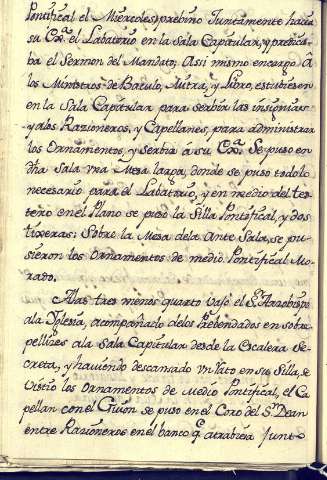 Pontifical el Miercoles, prebino Juntamente hacia
su Exª. el Labatorio en la Sala Capitular, y predica-
ba el Sermon del Mandato; Asi mismo encargó á
los Ministros de Baculo, Mitra, y Libro, estubiesen
en la Sala Capitular para serbir las insignias
y alos Razioneros, y Capellanes, para administrar
los Ornamentos, y serbir á su Exª. Se puso en
dhã Sala una Mesa larga, donde se puso todo lo
necesario para el Labatorio, y en medio del tes-
tero en el Plano se puso la Silla Pontifical, y dos
tixeras; Sobre la Mesa dela Ante Sala, se pu-
sieron los Ornamentos de medio Pontifical Mo-
rado.
Alas tres menos quarto vajo el Sr. Arzobispo
ala Yglesia, acompañado delos Prebendados en sobre-
pellizes ala Sala Capitular desde la Escalera Se-
creta, y haviendo descansado un rato en su Silla, se
vistio los Ornamentos de Medio Pontifical, el Ca-
pellan con el Guion se puso en el Coro del Sr. Dean
entre Razioneros en el banco q̃ atrabiesa Junt-